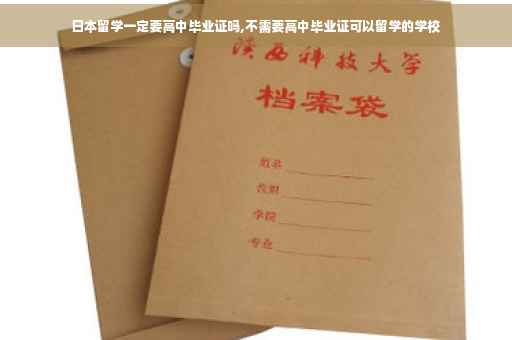 日本留学一定要高中毕业证吗,不需要高中毕业证可以留学的学校
陕西科技大学
档案袋
姓名
学院
专业